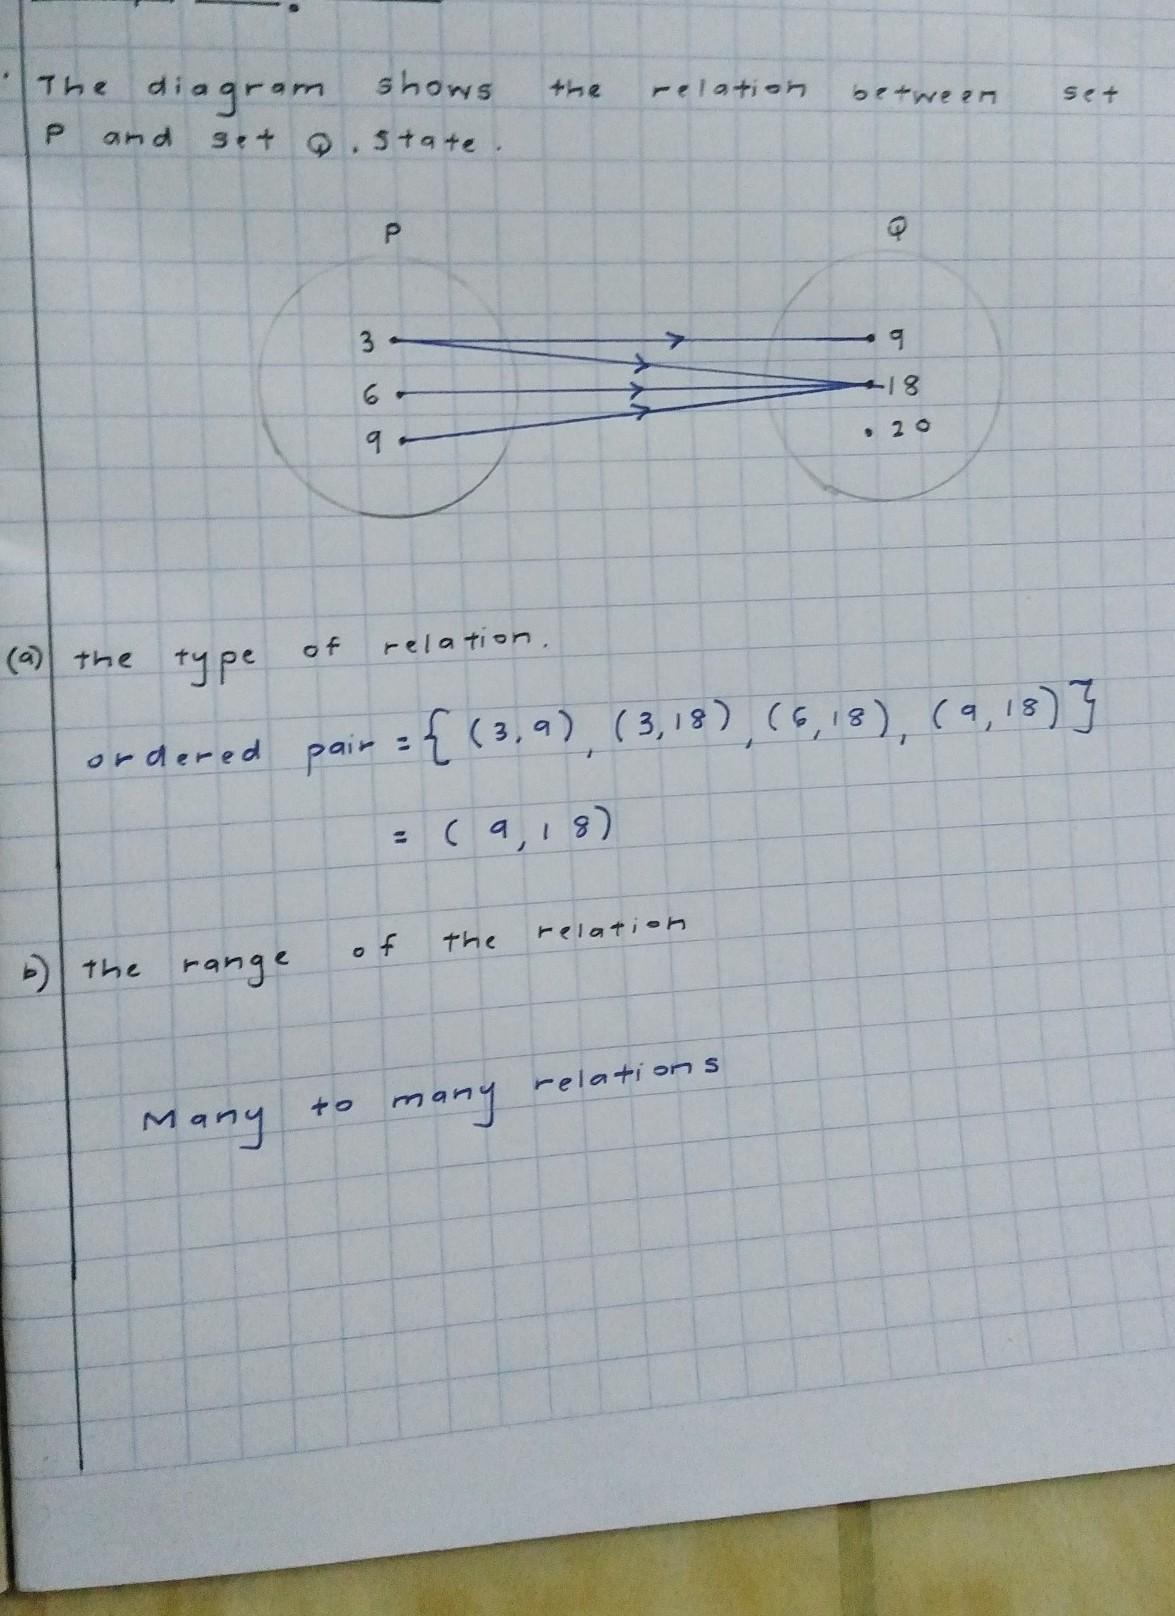 The diagram shows the relation between set
P and set Q. State.
P Q
3 9
6 18
9 20
(a) the type of relation.
ordered pair = { (3,9), (3,18), (6,18), (9,18) }
= (9,18)
b) the range of the relation
Many to many relations